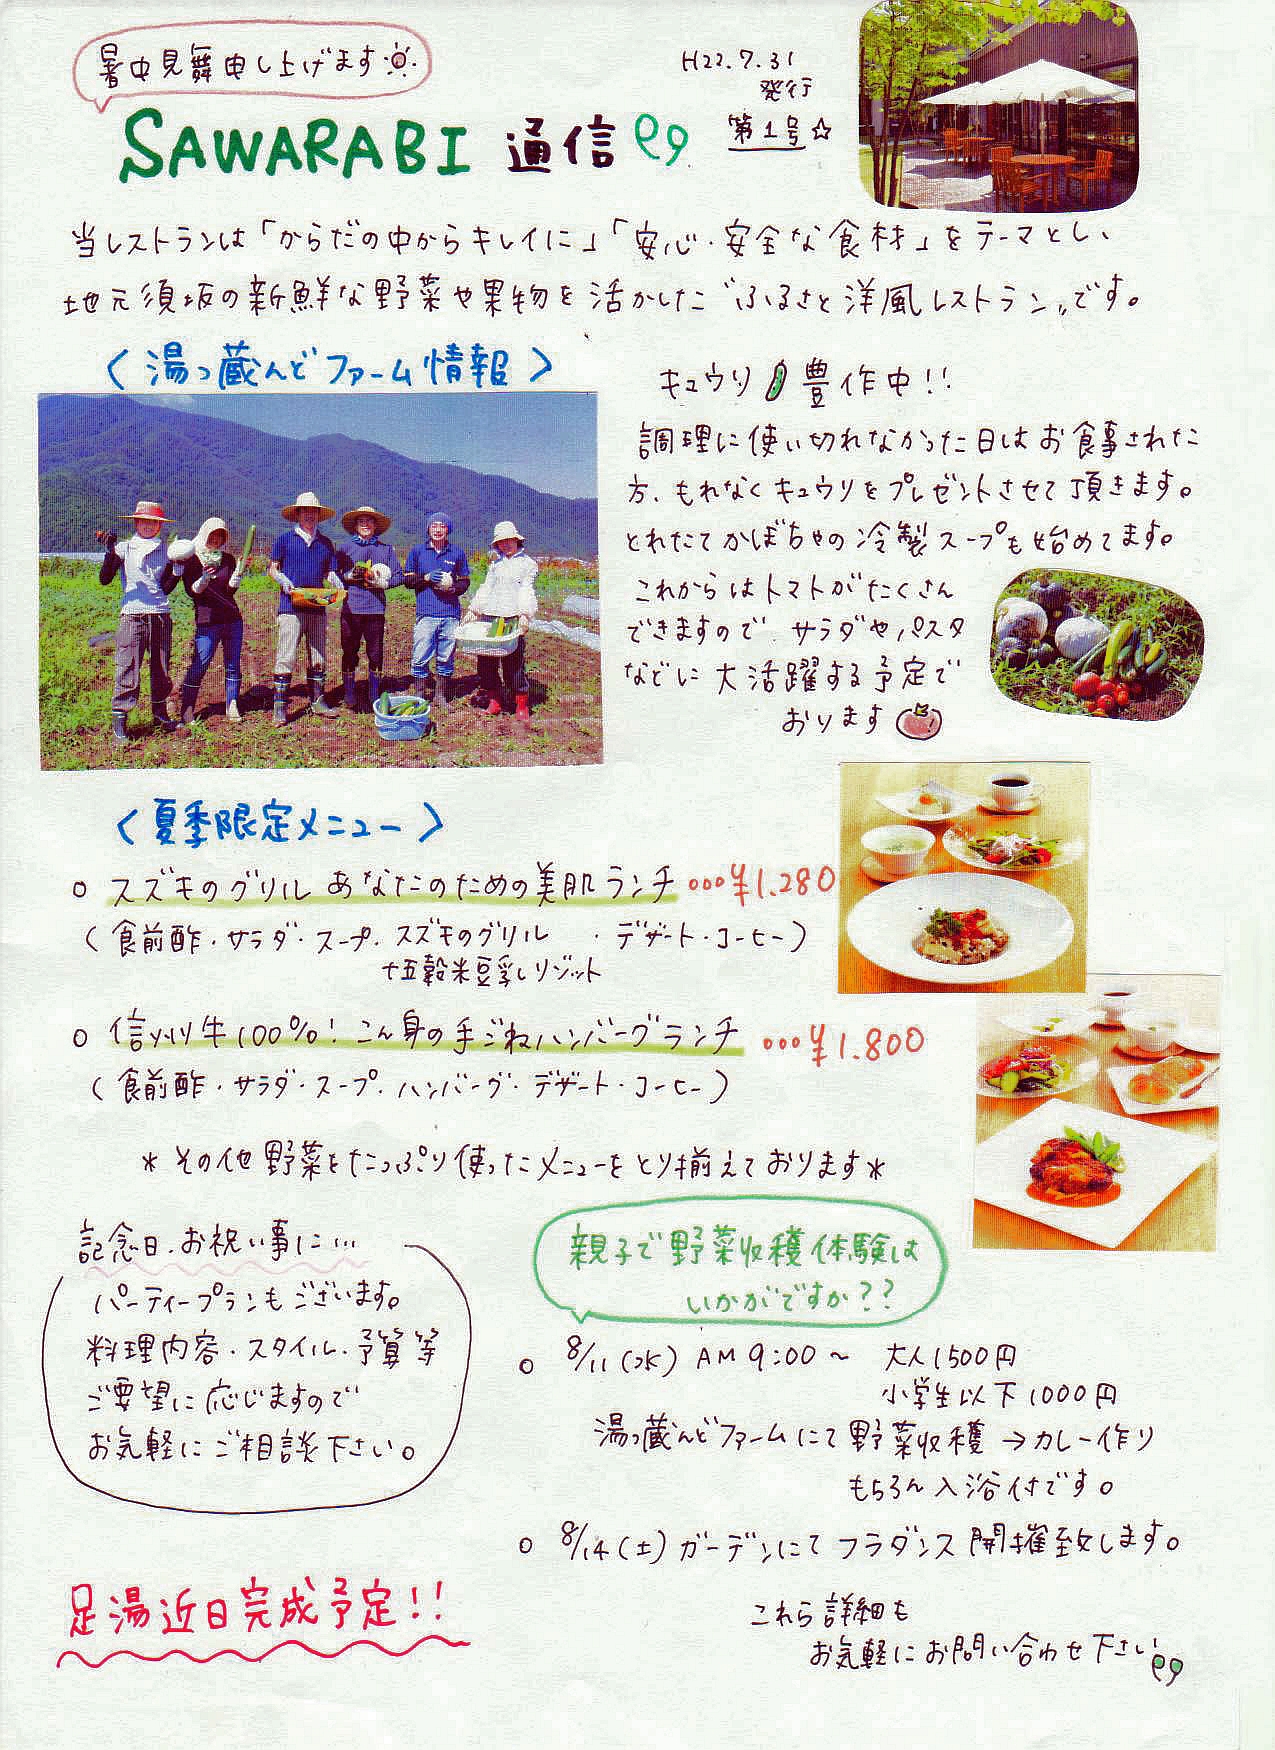 暑中見舞申し上げます
H22.7.31
発行
第1号☆
SAWARABI 通信
当レストランは「からだの中からキレイに」「安心・安全な食材」をテーマとし、
地元須坂の新鮮な野菜や果物を活かした"ふるさと洋風レストラン"です。
〈湯っ蔵んどファーム情報〉
キュウリ豊作中!!
調理に使い切れなかった日はお食事された
方、もれなくキュウリをプレゼントさせて頂きます。
とれたてかぼちゃの冷製スープも始めてます。
これからはトマトがたくさん
できますので、サラダやパスタ
などに大活躍する予定で
おります
〈夏季限定メニュー〉
○ スズキのグリル あなたのための美肌ランチ ○○○¥1.280
(食前酢・サラダ・スープ・スズキのグリル ・デザート・コーヒー)
十五穀米豆乳リゾット
○ 信州牛100%! こん身の手ごねハンバーグランチ ○○○¥1.800
(食前酢・サラダ・スープ・ハンバーグ・デザート・コーヒー)
*その他野菜をたっぷり使ったメニューをとり揃えております*
記念日、お祝い事に…
パーティープランもございます。
料理内容・スタイル・予算等
ご要望に応じますので
お気軽にご相談下さい。
足湯近日完成予定!!
親子で野菜収穫体験は
いかがですか??
○ 8/11(水) AM9:00〜 大人1500円
小学生以下1000円
湯っ蔵んどファームにて野菜収穫→カレー作り
もちろん入浴付です。
○ 8/14(土)ガーデンにてフラダンス開催致します。
これら詳細も
お気軽にお問い合わせ下さい